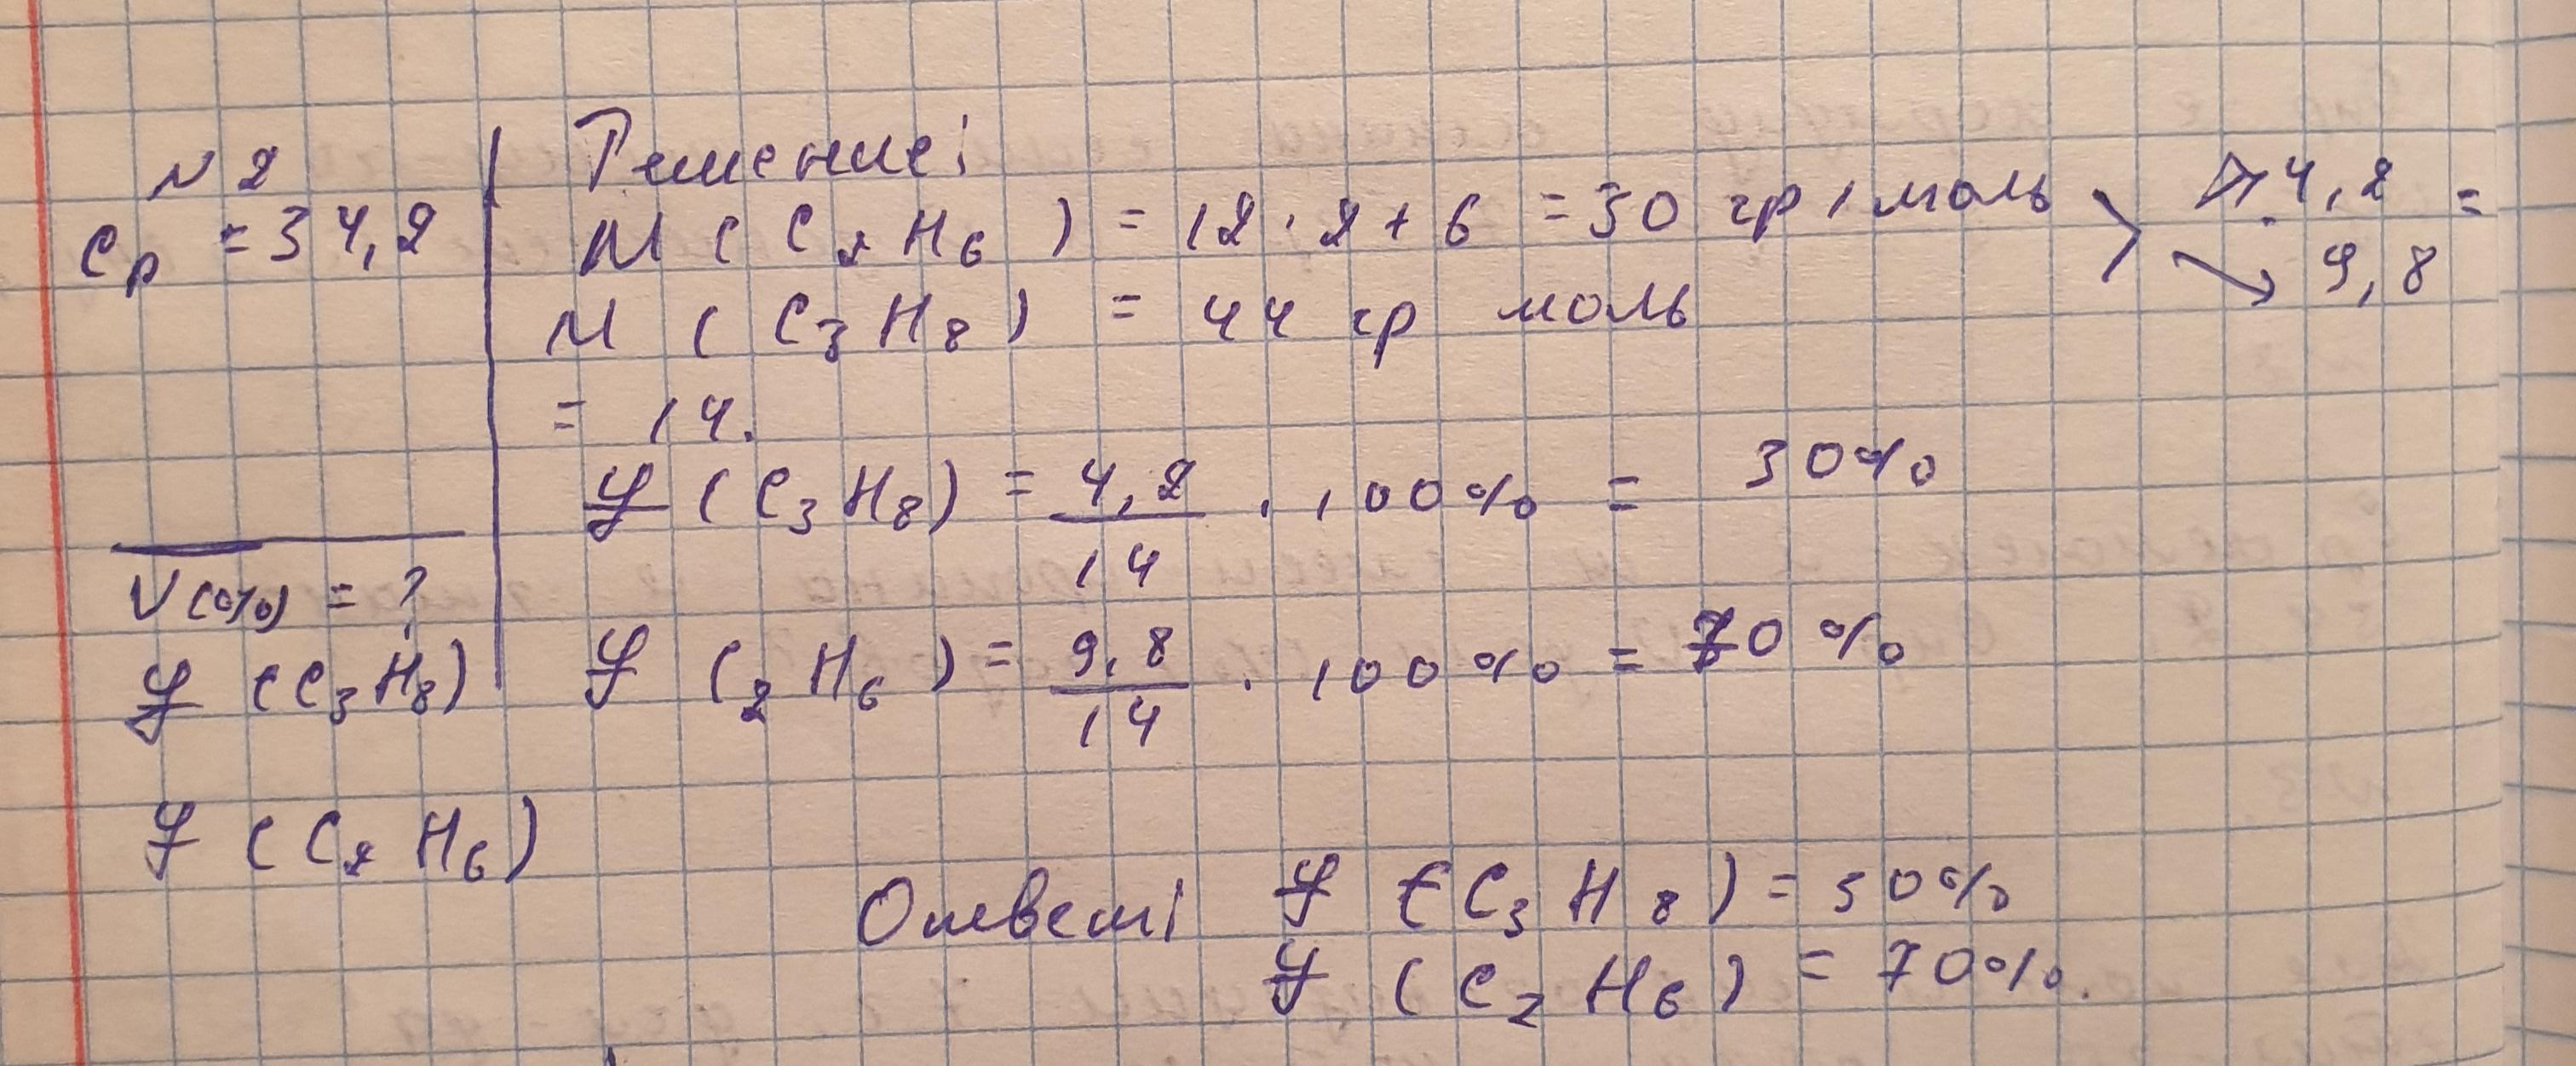 N 2
Ср = 34,2
V(%) = ?
φ (C₃H₈)
φ (C₂H₆)
Решение:
M (C₂H₆) = 12 · 2 + 6 = 30 гр / моль > ↗ 4,2 =
↘ 9,8
M (C₃H₈) = 44 гр моль
= 14.
φ (C₃H₈) = 4,2/14 · 100% = 30%
φ (₂H₆) = 9,8/14 · 100% = 70%
Ответ: φ (C₃H₈) = 30%
φ (C₂H₆) = 70%.